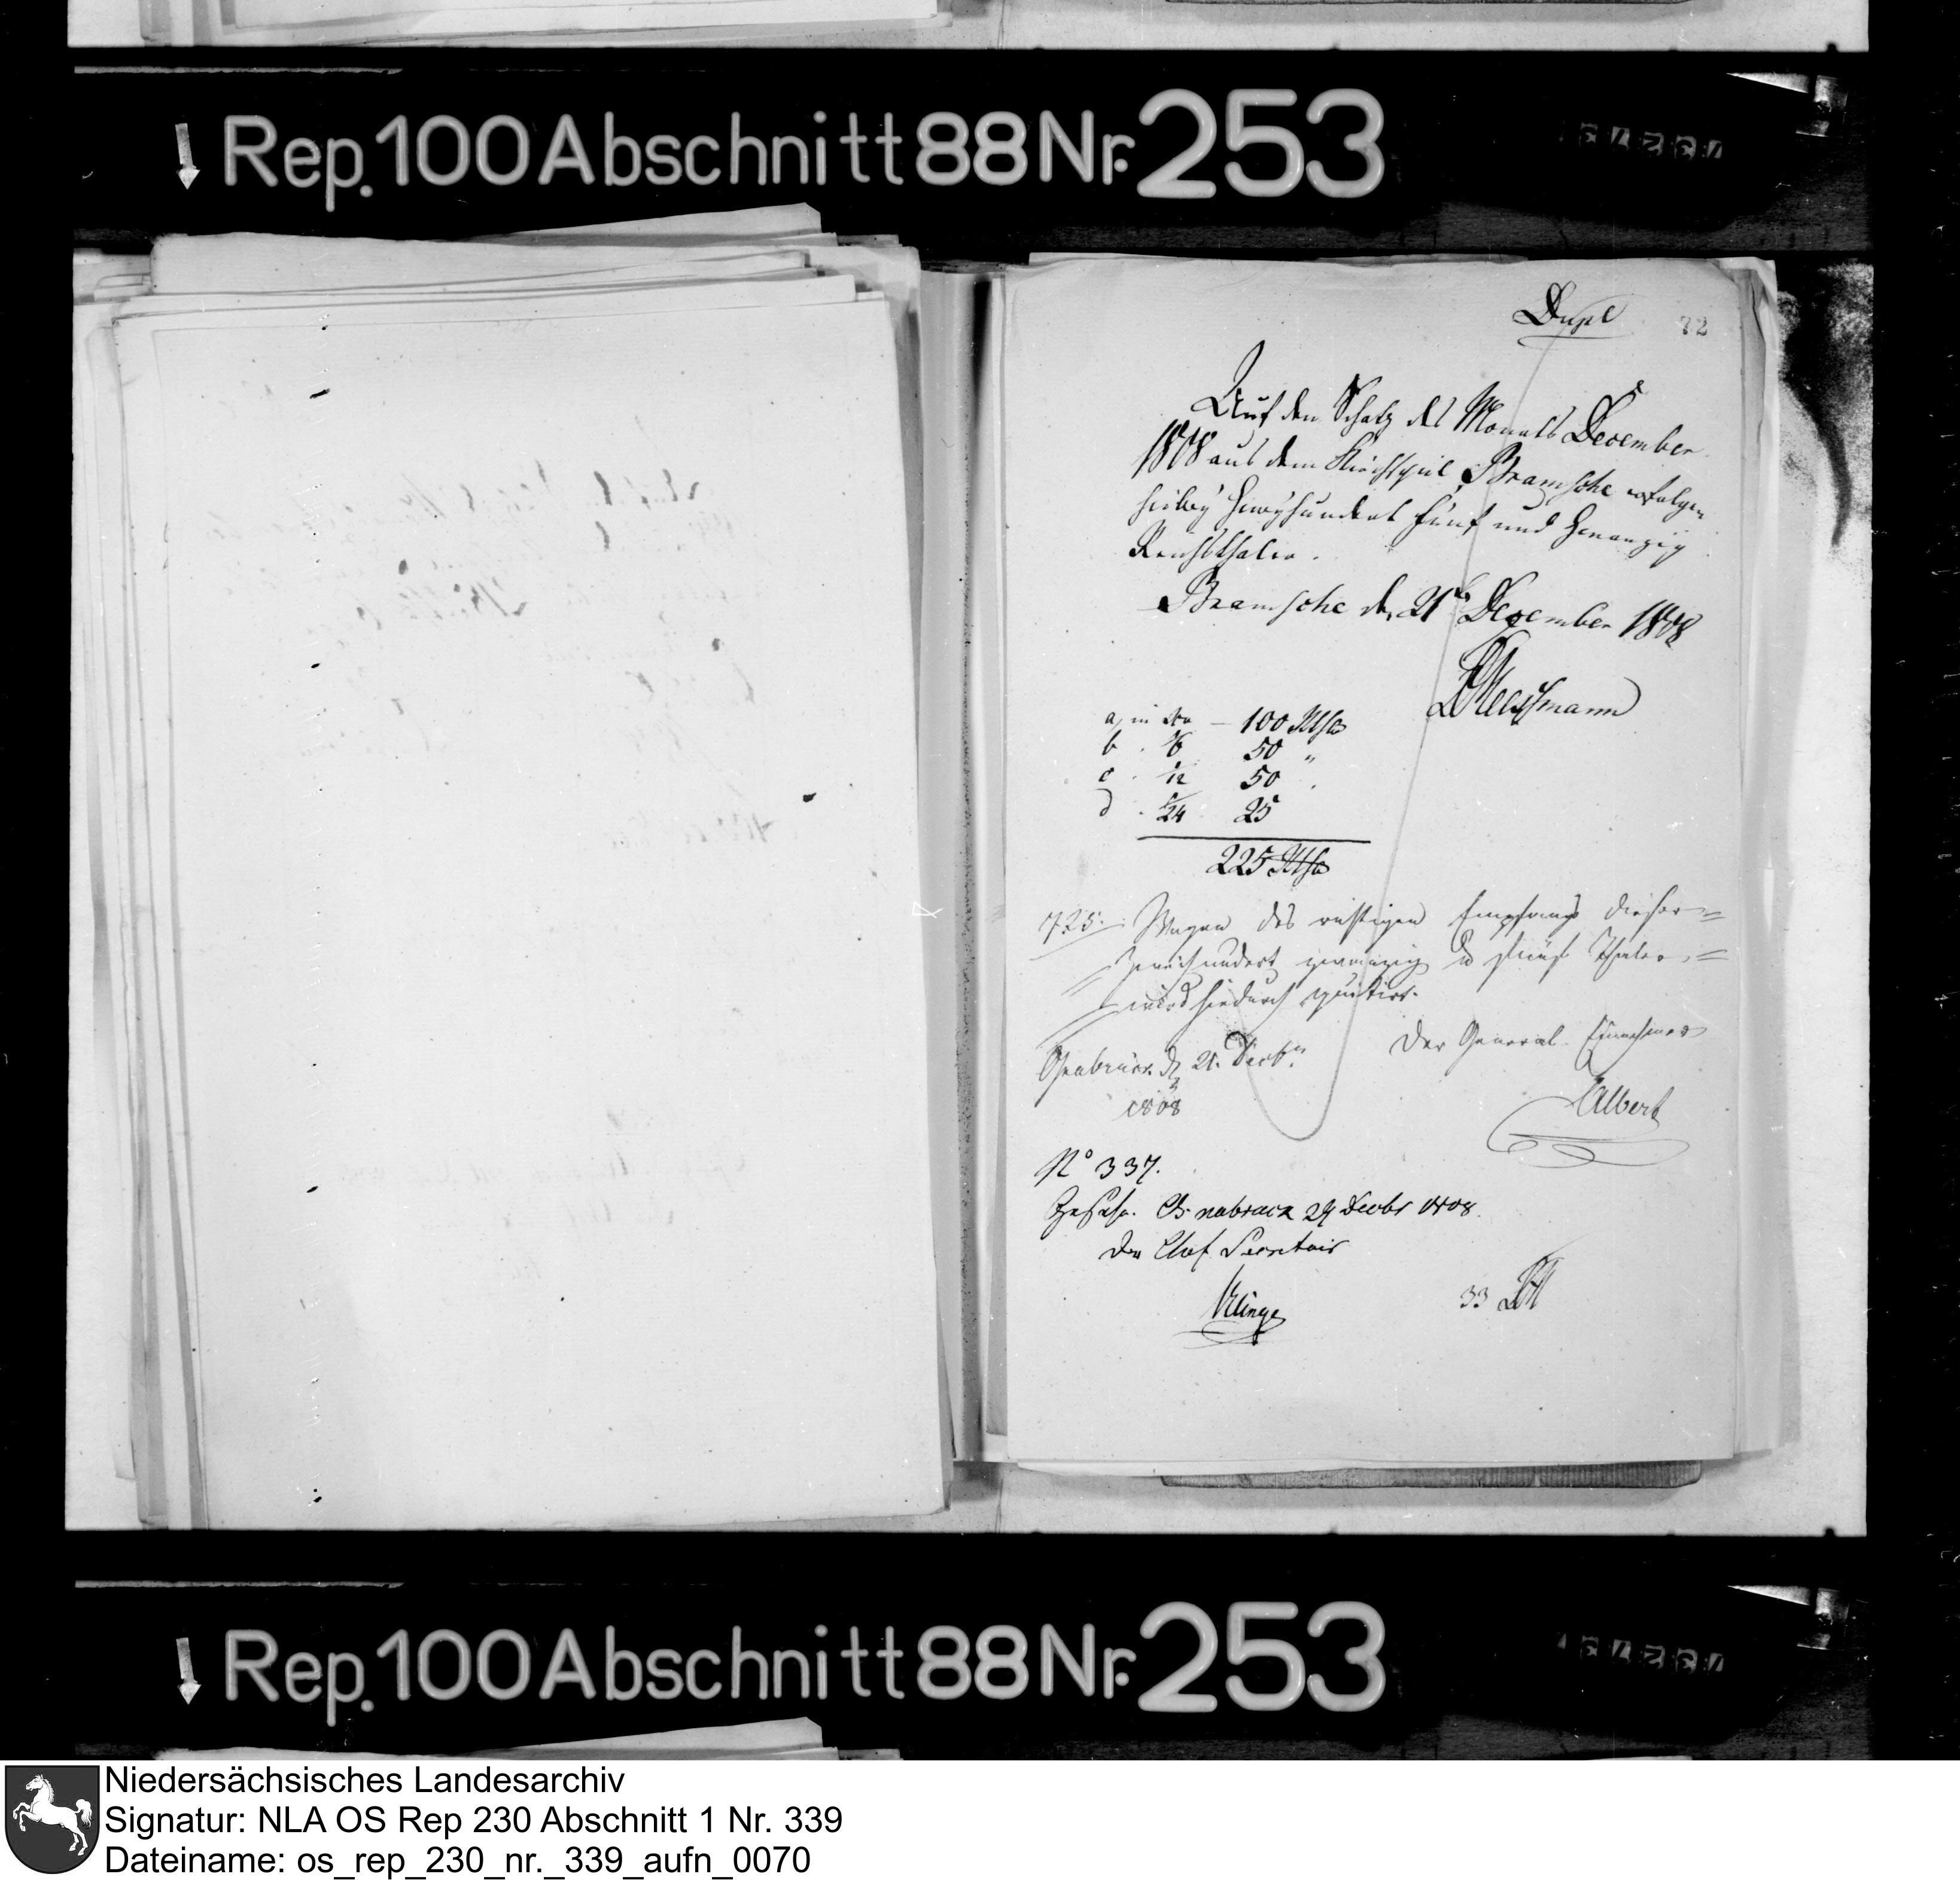 Rep. 100 Abschnitt 88 Nr. 253
Dupl
72
Auf den Schatz des Monats December
1808 aus dem Kirchspiel Bramsche erfolgen
hiebey Zweyhundert fünf und Zwanzig
Reichsthaler.
Bramsche den 21t December 1808
a, in — 100 Rthlr
b . 1/6 50 "
c . 1/12 50 .
d . 1/24 25
225 Rthlr
725. Wegen des richtigen Empfangs dieser
Zweihundert zwanzig u fünf Thaler
wird hiedurch quitirt.
Osnabrück d 21. Decbr
1808
Der General Einnehmer
Albert
No 337.
Gesehn. Osnabrück 24 Decbr 1808
Der Chef Secretair
Klinge
33
Rep. 100 Abschnitt 88 Nr. 253
Niedersächsisches Landesarchiv
Signatur: NLA OS Rep 230 Abschnitt 1 Nr. 339
Dateiname: os_rep_230_nr._339_aufn_0070